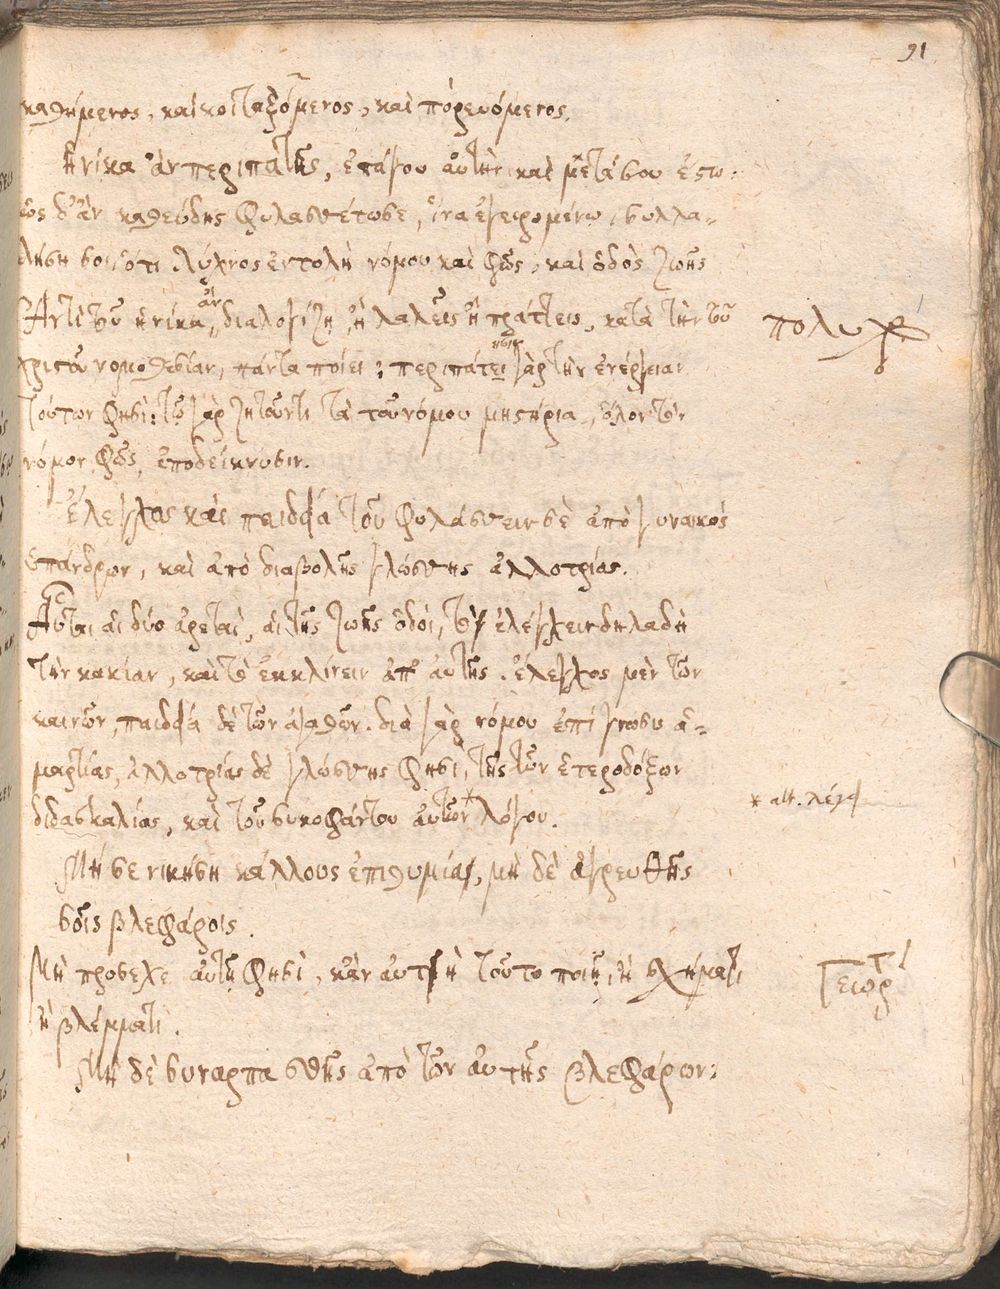 91
καθήμενος, καὶ κοιταζόμενος, καὶ πορευόμενος.
Ἡνίκα ἂν περιπατῇς, ἐπάγου αὐτὴν καὶ μετὰ σοῦ ἔστω·
ὡς δ' ἂν καθεύδῃς φυλασσέτωσε, ἵνα ἐγειρομένῳ, συλλα-
λήσῃ σοι, ὅτι λύχνος ἐντολὴ νόμου καὶ φῶς, καὶ ὁδὸς ζωῆς
Ἀντὶ τοῦ ἡνίκα ἂν διαλογίζῃ, ἢ λαλεῖς ἢ πράττεις, κατὰ τὴν τοῦ
πολυχ
χριστοῦ νομοθεσίαν, πάντα ποίει· περιπάτει γὰρ τὴν ἐνέργειαν
τούτων φησί· τῷ γὰρ ζητοῦντι τὰ τοῦ νόμου μυστήρια, ὅλον τὸν
νόμον φῶς, ἀποδείκνυσιν.
Ἔλεγχος καὶ παιδεία τοῦ φυλάσσειν σὲ ἀπὸ γυναικὸς
ὑπάνδρου, καὶ ἀπὸ διαβολῆς γλώσσης ἀλλοτρίας.
Αὗται αἱ δύο ἀρεταὶ, αἱ τῆς ζωῆς ὁδοὶ, τὸ ἐλέγχειν δηλαδὴ
τὴν κακίαν, καὶ τὸ ἐκκλίνειν ἀπ' αὐτῆς. ἔλεγχος μὲν τῶν
κακῶν, παιδεία δὲ τῶν ἀγαθῶν. διὰ γὰρ νόμου ἐπίγνωσις ἁ-
μαρτίας, ἀλλοτρίας δὲ γλώσσης φησί, τῆς τῶν ἑτεροδόξων
διδασκαλίας, καὶ τοῦ συκοφάντου αὐτῶν* λόγου.
* alt. λέγει
Μή σε νικήσῃ κάλλους ἐπιθυμία, μὴ δὲ ἀγρευθῇς
σοῖς βλεφάροις.
Μὴ πρόσεχε αὐτῇ φησὶ, κἂν αὐτὴ τοῦτο ποιῇ, ἢ σχήματι
ἢ βλέμματι.
Μὴ δὲ συναρπασθῇς ἀπὸ τῶν αὐτῆς βλεφάρων·